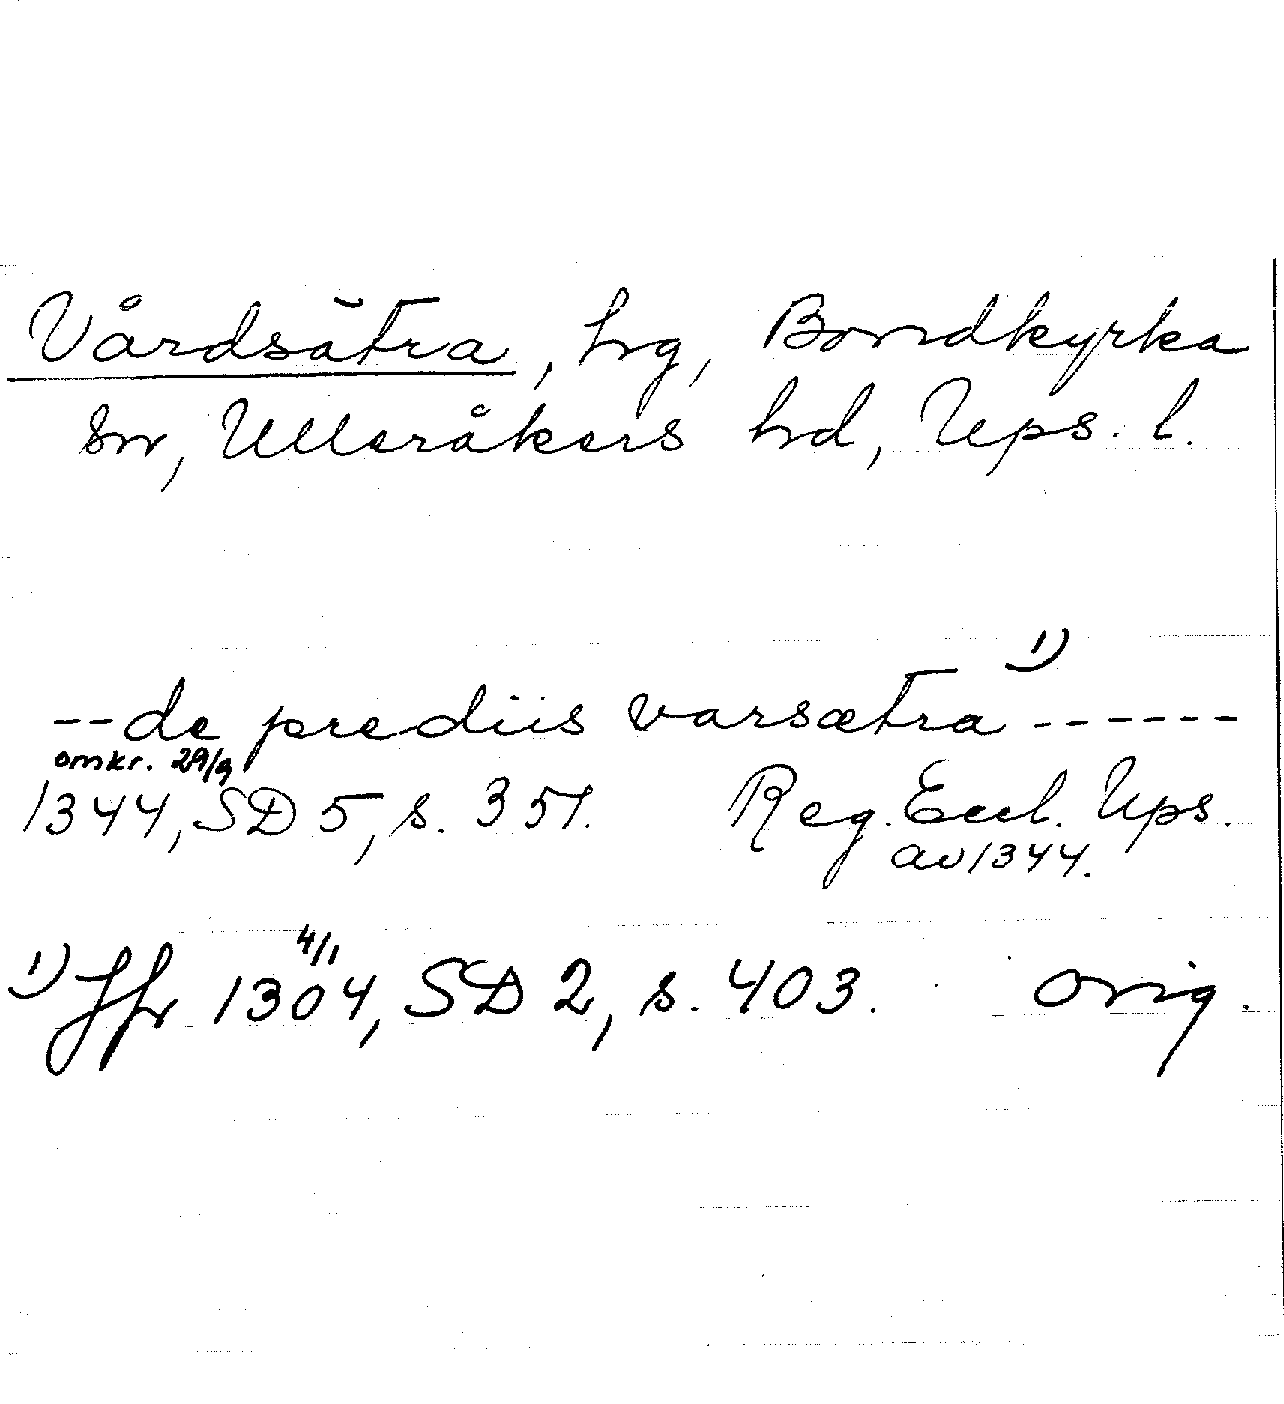 Vårdsätra, hg, Bondkyrka
sn, Ulleråkers hd, Ups. l.
1)
--de prediis varsætra------
omkr. 29/9
1344, SD 5, s. 351. Reg. Eccl. Ups.
av 1344.
4/1
1) Jfr 1304, SD 2, s. 403. orig.